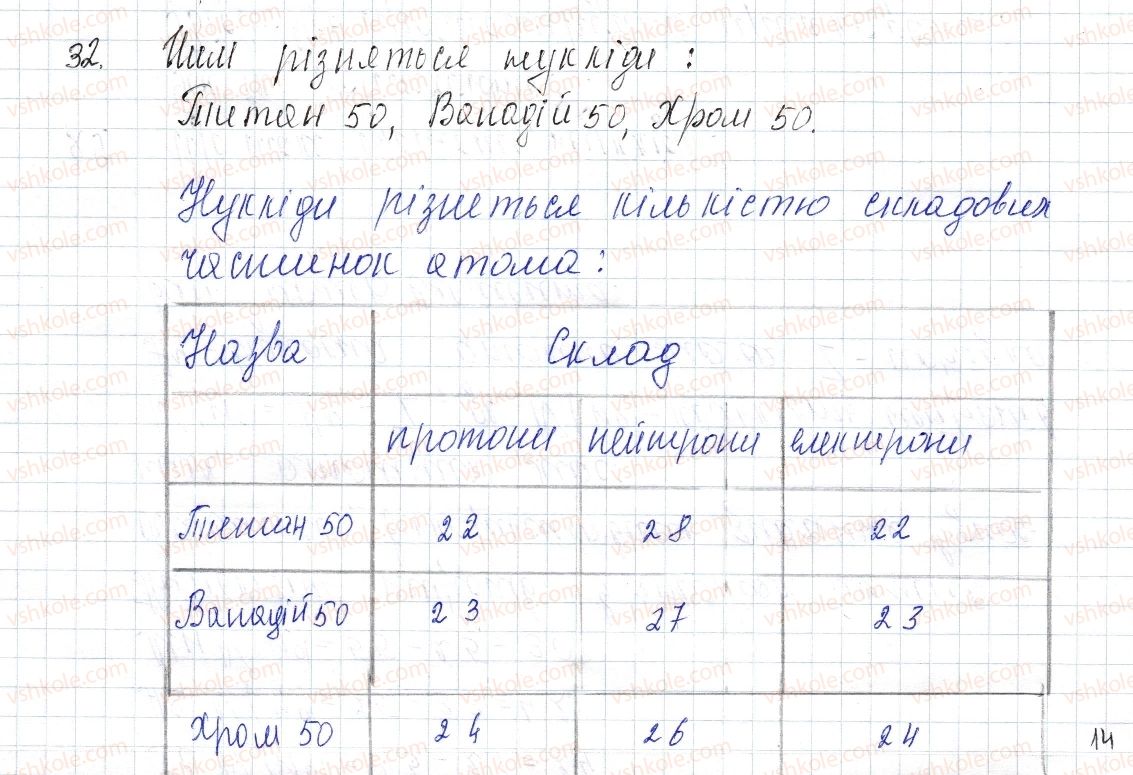 32. Чим різняться нукліди :
Титан 50, Ванадій 50, Хром 50.
Нукліди різняться кількістю складових
частинок атома :
Назва Склад
протони нейтрони електрони
Титан 50 22 28 22
Ванадій 50 23 27 23
Хром 50 24 26 24
14